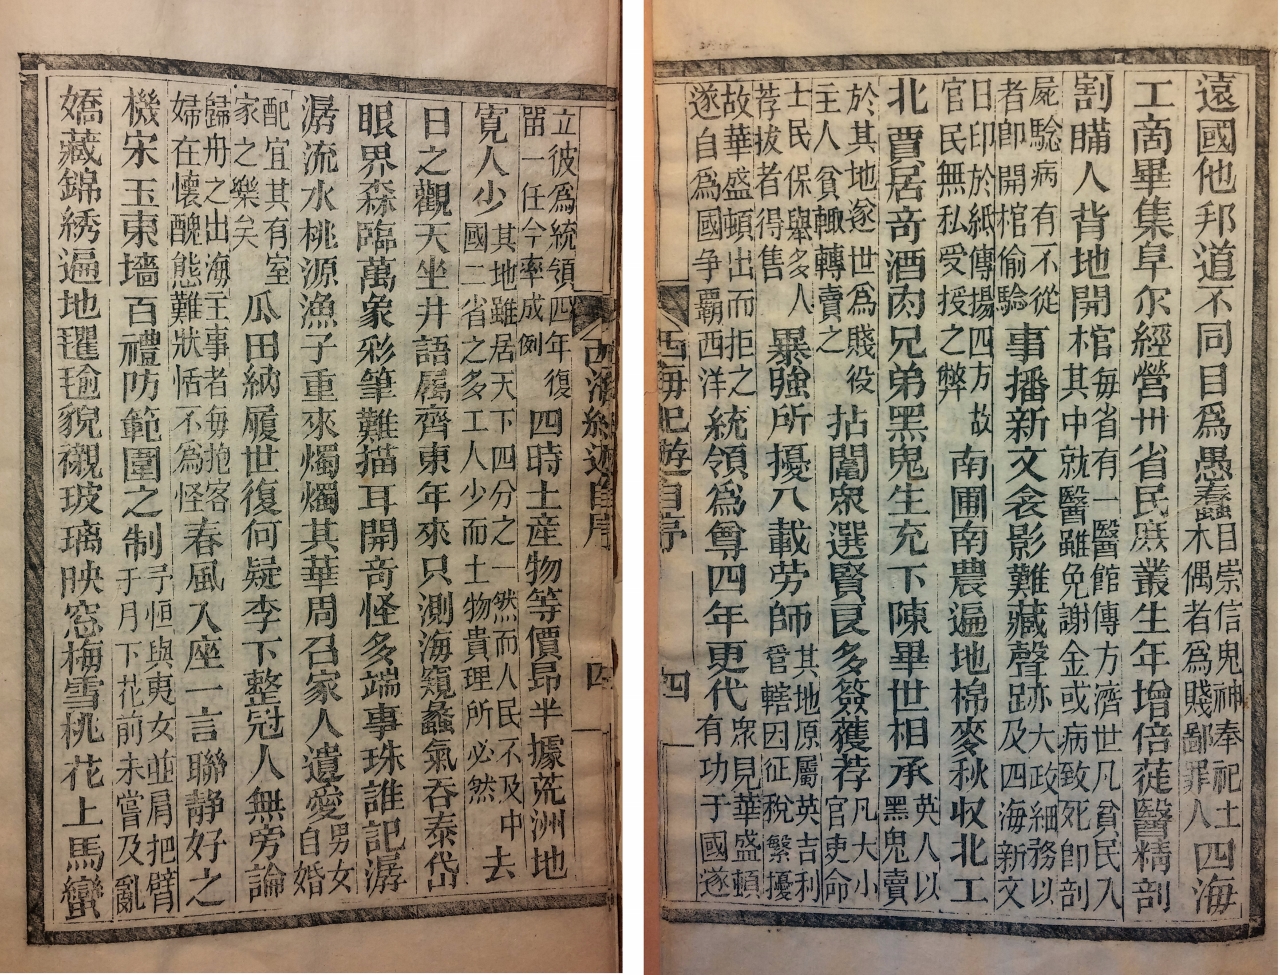 遠國他邦道不同目爲愚蠢目崇信鬼神奉祀土木偶者爲賤鄙罪人四海
工商畢集阜尔經營卅省民庶叢生年增倍蓰醫精剖
割瞞人背地開棺每省有一醫館傳方濟世凡貧民入其中就醫雖免謝金或病致死卽剖
屍驗病有不從者卽開棺偷驗事播新文衾影難藏聲跡亦大政細務以及四海新文
日印於紙傳揚四方故官民無私受授之弊南圃南農遍地棉麥秋収北工
北賈居奇酒肉兄弟黑鬼生充下陳畢世相承英人以黑鬼賣
於其地遂世爲賤役主人貧輒轉賣之拈鬮衆選賢良多簽獲荐凡大小官吏命
士民保舉多人荐拔者得售暴強所擾八載劳師其地原屬英吉利管轄因征稅繁擾
故華盛頓出而拒之遂自爲國争覇西洋統領爲尊四年更代衆見華盛頓有功于國遂
西海紀遊自序
四
西海紀遊自序
四
立彼爲統領四年復留一任今率成例四時土産物等價昂半據荒洲地
寛人少其地雖居天下四分之一然而人民不及中國二省之多工人少而土物貴理所必然去
日之觀天坐井語属齊東年來只測海窺蠡氣吞泰岱
眼界森臨萬象彩筆難描耳開奇怪多端事珠誰記潺
潺流水桃源漁子重來燭燭其華周召家人遺愛男女自婚
配宜其有室家之樂矣瓜田納履世復何疑李下整冠人無旁論
歸舟之出海主事者每抱客婦在懷醜態難狀恬不為怪春風入座一言聯静好之
機宋玉東墻百禮防範圍之制予恒與夷女並肩把臂于月下花前未嘗及亂
嬌藏錦綉遍地瓘瑜貌襯玻璃映窓梅雪桃花上馬蠻